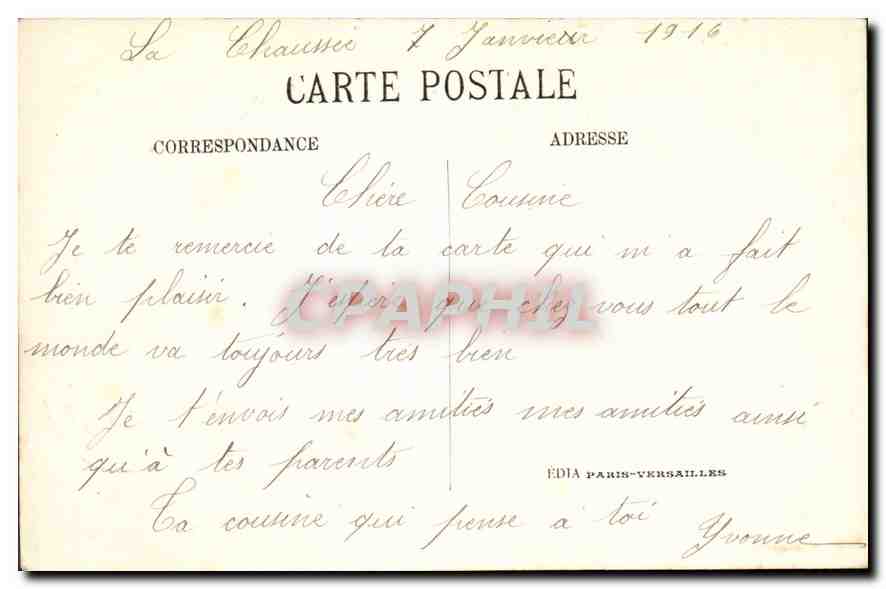 La Chaussée 7 Janvieur 1916
CARTE POSTALE
CORRESPONDANCE
ADRESSE
Chére Cousine
Je te remercie de la carte qui m'a fait
bien plaisir. J'espere que chez vous tout le
CPAPHIL
monde va toujours très bien
Je t'envois mes amitiés mes amitiés ainsi
qu'à tes parents
EDIA PARIS-VERSAILLES
Ta cousine qui pense à toi
Yvonne